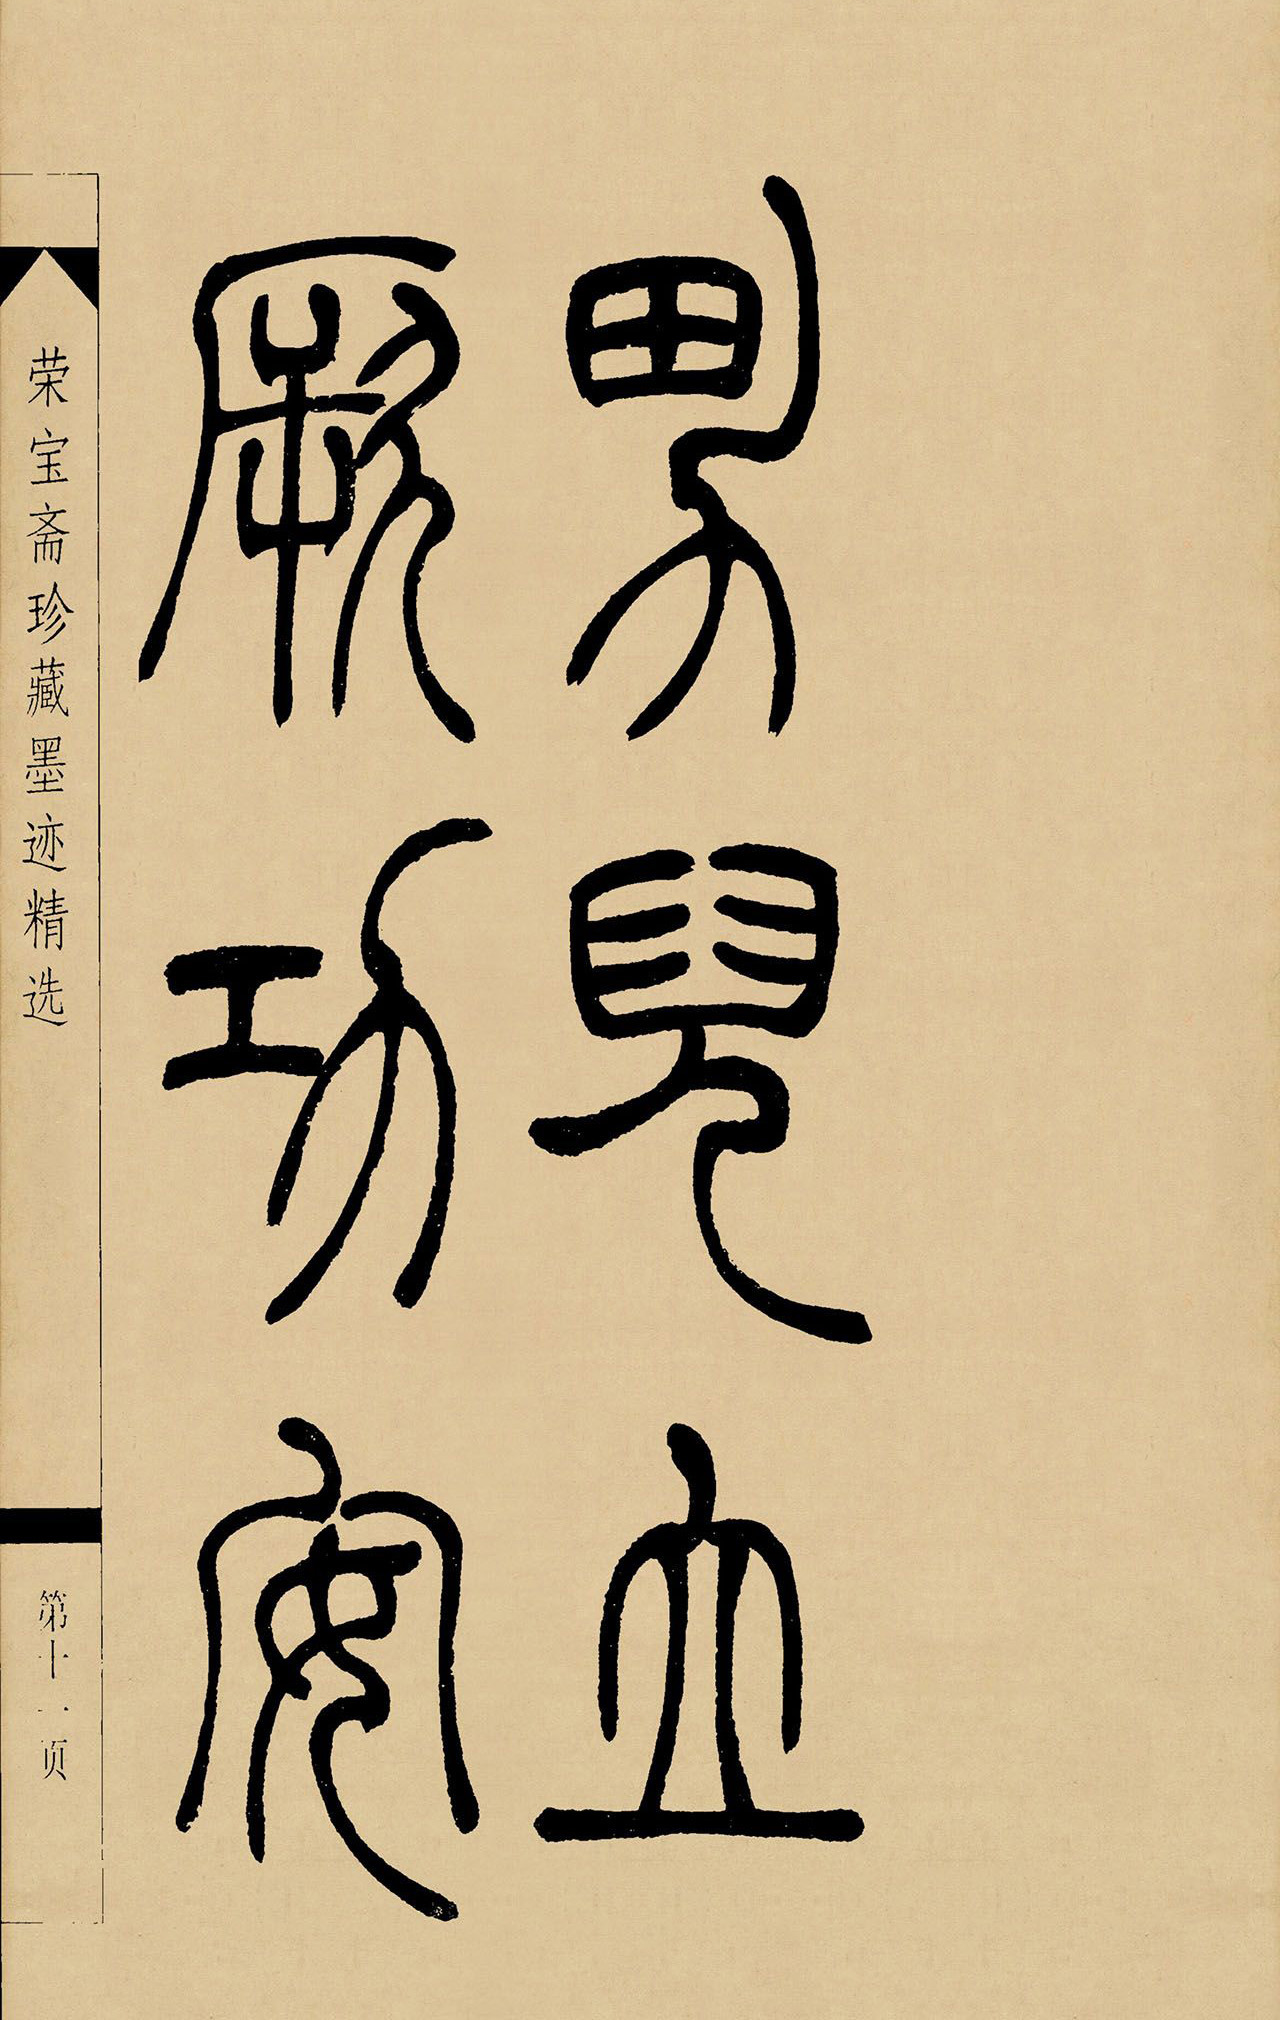 男兒立
厥功安
荣宝斋珍藏墨迹精选
第十一页